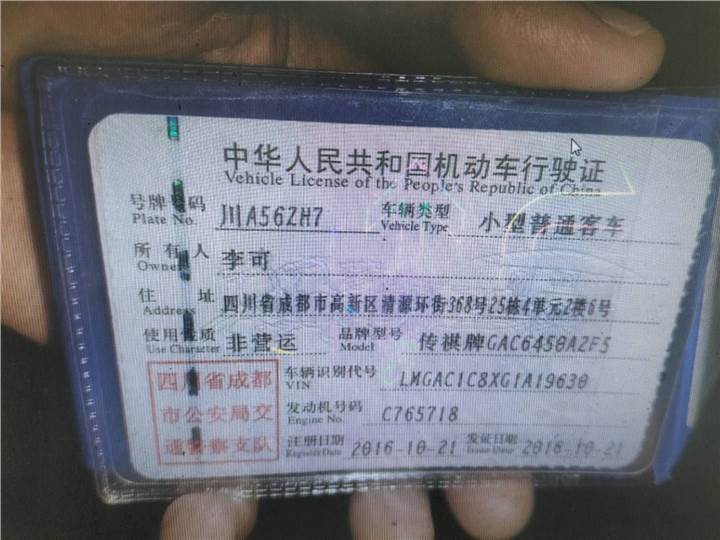 中华人民共和国机动车行驶证
Vehicle License of the People's Republic of China
号牌号码 川A56ZH7 车辆类型 小型普通客车
Plate No. Vehicle Type
所有人 李可
Owner
住址 四川省成都市高新区清源环街368号25栋4单元2楼6号
Address
使用性质 非营运 品牌型号 传祺牌GAC6450A2F5
Use Character Model
四川省成都 车辆识别代号 LMGAC1C8XG1A19630
VIN
市公安局交 发动机号码 C765718
Engine No.
通警察支队 注册日期 2016-10-21 发证日期 2016-10-21
Register Date Issue Date